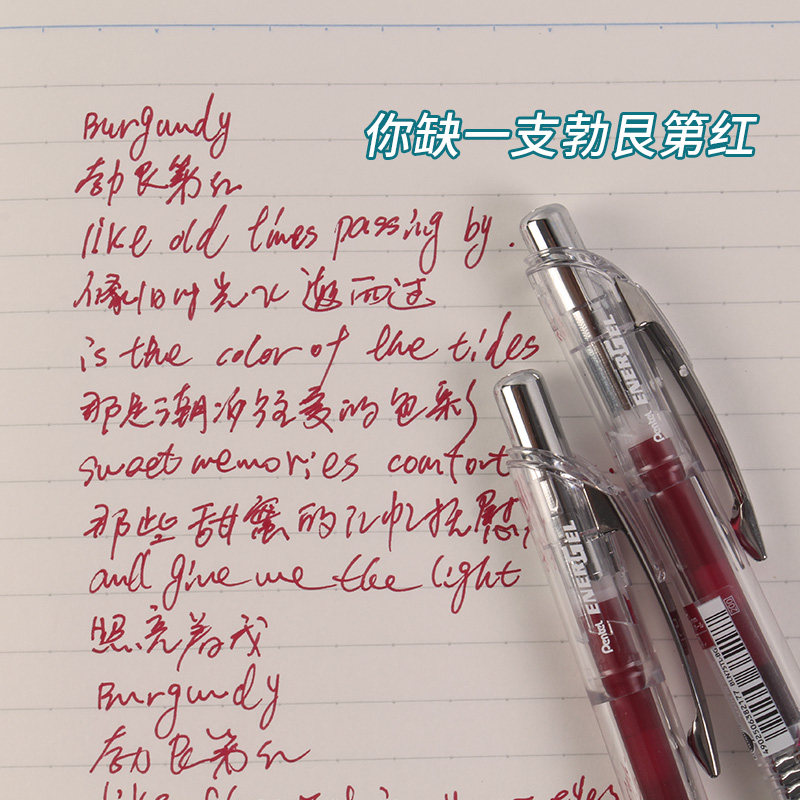 你缺一支勃艮第红
Burgundy
勃艮第红
like old times passing by.
像旧时光飞逝而过
is the color of the tides
那是潮汐往复的色彩
sweet memories comfort
那些甜蜜的记忆抚慰,
and give me the light
照亮着我
Burgundy
勃艮第红
like
eyes
Pentel ENERGEL
Pentel ENERGEL
4902506382177